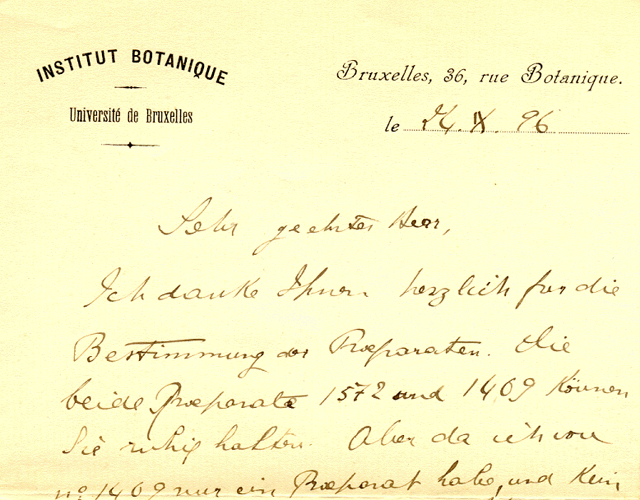 INSTITUT BOTANIQUE
Université de Bruxelles
Bruxelles, 36, rue Botanique.
le 24. IX. 96
Sehr geehrter Herr,
Ich danke Ihnen herzlich for die
Bestimmung der Præparaten. Die
beide Præparate 1572 und 1409 können
Sie ruhig halten. Aber da ich von
nº 1409 nur ein Præparat habe, und kein